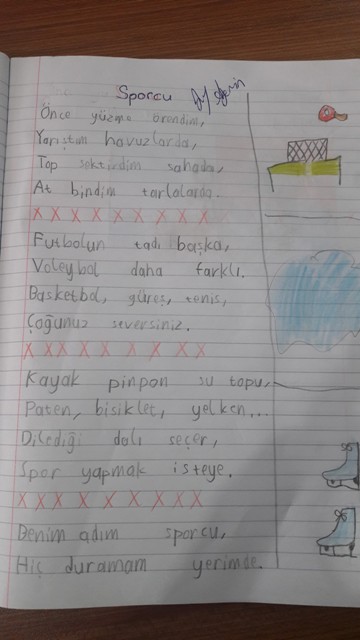 Sporcu
Önce yüzme örendim,
Yarıştım havuzlarda,
Top sektirdim sahada,
At bindim tarlalarda.
X X X X X X X X X
Futbolun tadı başka,
Voleybol daha farklı.
Basketbol, güreş, tenis,
Çoğunuz seversiniz.
X X X X X X X X
Kayak pinpon su topu,
Paten, bisiklet, yelken...
Dilediği dalı seçer,
Spor yapmak isteye.
X X X X X X X X X
Benim adım sporcu,
Hiç duramam yerimde.